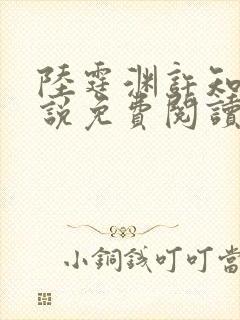 陸霆淵許知
說免費閱讀
小銅錢叮叮當